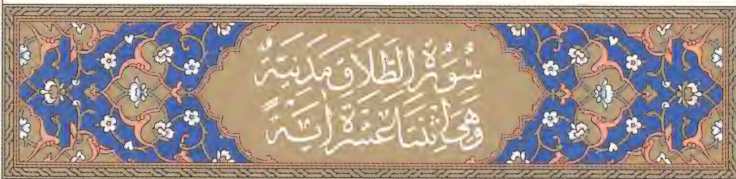 سُورَةُ الطَّلَاقِ مَدَنِيَّةٌ
وَهِيَ اثْنَتَا عَشْرَةَ آيَةً